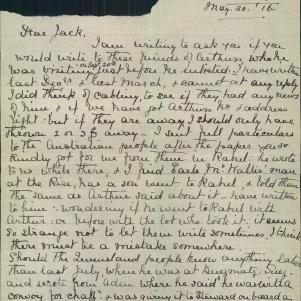 May. 20. '16
Dear Jack,
I am writing to ask you if you
would write to these friends of Arthur's whom he
was writing just before he enlisted. I have written
last Decr & last March, & cannot get any reply
I did think of cabling to see if they had any news
of him & if we have got Arthur's No & address
right but if they are away I should only have
thrown 2 or 3 £ away. I sent full particulars
to the Australian people after the papers you so
kindly got for me from them in Rabul. he wrote
to us while there, & I find Earle Mc man
at the Rise, has a son went to Rabul, & told them
the same as Arthur said about it. I have written
to him wondering if he went to Rabul with
Arthur. or before with the lot who took it: it seems
so strange not to let them write sometimes I think
there must be a mistake somewhere.
Should the Queensland people know anything later
than last July, when he was at Suez,
and wrote from Aden where he said he was with a
convoy for & was going it Steward on board a